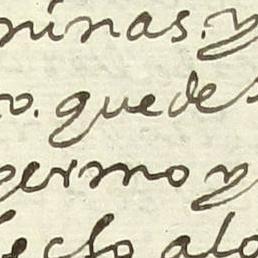 ninas. y
o. quede
permo y
hecho alo